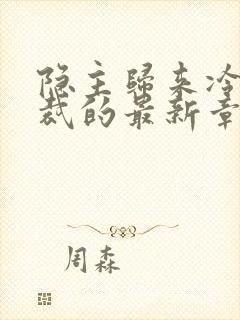 隐主归来冷
裁的最新章
周森